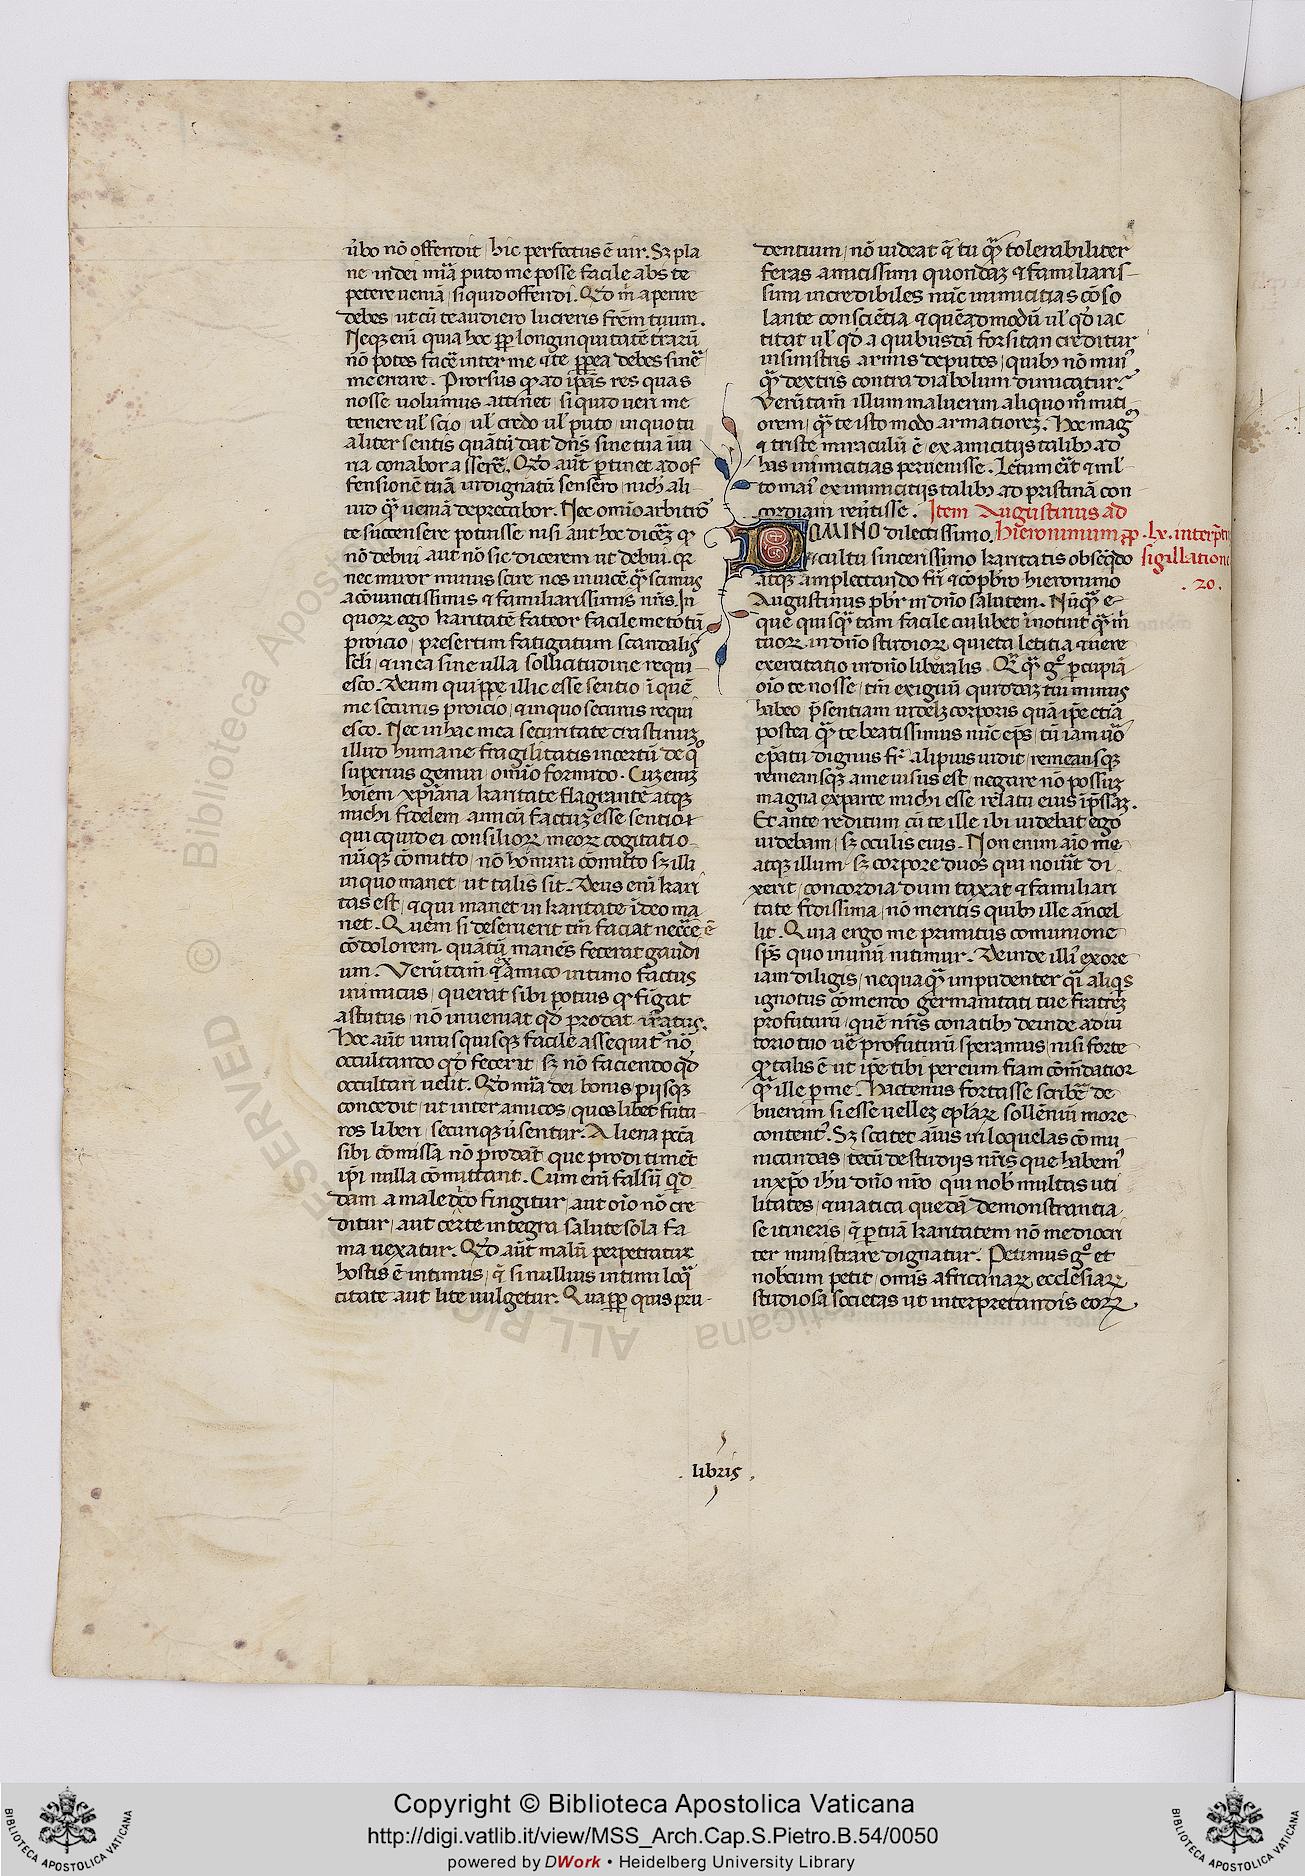 ṽbo nō offendit / hic perfectus ē uir. Sꝫ pla
ne in dei mĩa puto me posse facile abs te
petere ueniã / si quid offendi. Qď m̃ aperire
debes / ut cū te audiero lucreris frēm tuum.
Neqꝫ eni quia hoc ꝓp longinquitatē t̃raꝝ
nō potes facẽ inter me ⁊ te ꝓpea debes sinẽ
me errare. Prorsus ꝙ ad ip̄as res quas
nosse uolumus attinet / si quid ueri me
tenere ul̃ scio / ul̃ credo ul̃ puto in quo tu
aliter sentis quãtū dat dñs sine tua iniu
ria conabor asserẽ. Qď aũt ꝑtinet ad of
fensionē tuã indignatū sensero / nich ali
uid ꝙ̃ ueniã deprecabor. Nec omĩo arbitroꝛ
te succensere potuisse nisi aut hoc dicẽꝫ ꝙ
nō debui aut nō sic dicerem ut debui. qꝛ
nec miror minus scire nos inuicē ꝙ̃ scimuꝰ
a cōiunctissimis ⁊ familiarissimis nr̃is. In
quoꝝ ego karitatē fateor facile me totū
proicio / presertim fatigatum scandalis
sc̃li / ⁊ in ea sine ulla sollicitudine requi
esco. Deum quippe illic esse sentio ĩ quē
me securus proicio / ⁊ in quo securus requi
esco. Nec in hac mea securitate crastinuꝫ
illud humane fragilitatis incertū de q̊
superius gemui / omĩo formido. Cuꝫ eniꝫ
hoĩem xp̄iana karitate flagrantē atqꝫ
michi fidelem amicū factuꝫ esse sentio ⁊
quicquid ei consilioꝝ meoꝝ cogitatio
nūqꝫ cōmitto / nō homini cōmitto sꝫ illi
in quo manet / ut talis sit. Deus eni kari
tas est / ⁊ qui manet in karitate ĩ deo ma
net. Quem si deseruerit tm̃ faciat neccē ē
cōdolorem. quãtū manēs fecerat gaudi
um. Verūtam̃ q̃ ex amico intimo factus
inimicus / querat sibi potius ꝙ fingat
astutus / nō inueniat qď prodat iratus.
Hoc aũt unusquisqꝫ facile assequit̃ nō
occultando qď fecerit / sꝫ nō faciendo qď
occultari uelit. Qď mĩa dei bonis piisqꝫ
concedit / ut inter amicos / quos libet futu
ros liberi / securiqꝫ ũsentur. Aliena pcc̄a
sibi cōmissa nō prodãt / que prodi timēt
ip̄i nulla cōmittant. Cum eni falsū qď
dam a maledico fingitur / aut oĩo nō cre
ditur / aut certe integra salute sola fa
ma uexatur. Qď aũt malū perpetratur
hostis ē intimus / ⁊ si nullius intimi loq̃
citate aut lite uulgetur. Quaꝓp quis pru
dentium / nō uideat ⁊ tu ꝙ̃ tolerabiliter
feras amicissimi quondaꝫ ⁊ familiaris
simi incredibiles nūc inimicitias cōso
lante consciētia ⁊ quēadmodū ul̃ qď iac
titat ul̃ qď a quibusdã forsitan creditur
in sinistris armis deputes / quibꝫ nō minꝰ
ꝙ̃ dextris contra diabolum dimicatur.
Verūtam̃ illum maluerim aliquo mō miti
orem / ꝙ̃ te isto modo armatioreꝫ. Hoc magꝰ
⁊ triste miraculū ē / ex amicitiis talibꝫ ad
has inimicitias peruenisse. Letum erit ⁊ mul
to maĩ ex inimicitiis talibꝫ ad pristinã con
cordiam reũtisse. Item Augustinus ad
DOMINO dilectissimo. Hieronimum ꝓ .lx. interp̄tũ
⁊ cultu sincerissimo karitatis obseq̃do sigillatione
atqꝫ amplectando fr̃i ⁊ cōpb̃ro hieronimo .20.
Augustinus pb̃r in dño salutem. Nūꝙ̃ e
que quisꝙ̃ tam facie cuilibet ĩnotuit ꝙ̃ m̃
tuoꝝ in dño studioꝝ quieta letitia ⁊ uere
exercitatio in dño liberalis. Qr̃ ꝙ̃ gͦ ꝑcupiã
oĩo te nosse / tm̃ exiguū quiddaꝫ tui minuꝰ
habeo p̃sentiam uidelꝫ corporis quã ip̃e etiã
postea ꝙ̃ te beatissimus nūc ep̄s / tū iam ũo
ep̄atu dignus fr̃ alipius uidit / remeansqꝫ
remeansqꝫ a me uisus est / negare nō possuꝫ
magna ex parte michi esse relatu eius ip̄ssaꝫ.
Et ante reditum cū te ille ibi uidebat ego
uidebam / sꝫ oculis eius. Non enim aĩo me
atqꝫ illum / sꝫ corpore duos qui nouit di
xerit / concordia dum taxat ⁊ familiari
tate fidissima / nō meritis quibꝫ ille ãncel
lit. Quia ergo me primitus comunione
sp̄s quo in unū nitimur. Deinde illiꝰ ex ore
iam diligis / nequaꝙ̃ impudenter q̃i aliqꝰs
ignotus cōmendo germanitati tue fratreꝫ
profuturū / quē nr̃is conatibꝫ deinde adiu
torio tuo uē profuturū speramus / nisi forte
ꝙ talis ē ut ip̃e tibi per eum fiam cōm̃datior
ꝙ̃ ille ꝑ me. Hactenus fortasse scribẽ de
bueram si esse uelleꝫ ep̄laꝝ sollēniū more
contentꝰ. Sꝫ scatet aĩus in loquelas cōmu
nicandas / tecū de studiis nr̃is que habemꝰ
in xp̄o ih̃u dño nr̃o / qui nob̃ multas uti
litates / ⁊ uiatica quedã demonstrantia
se itineris / ⁊ ꝑ tuã karitatem nō mediocri
ter ministrare dignatur. Petimus gͦ et
nobcum petit / omĩs africanaꝝ ecclesiaꝝ
studiosa societas ut interpretandis eoꝝ
. libris .
Copyright © Biblioteca Apostolica Vaticana
http://digi.vatlib.it/view/MSS_Arch.Cap.S.Pietro.B.54/0050
powered by DWork • Heidelberg University Library
BIBLIOTECA APOSTOLICA VATICANA
BIBLIOTECA APOSTOLICA VATICANA